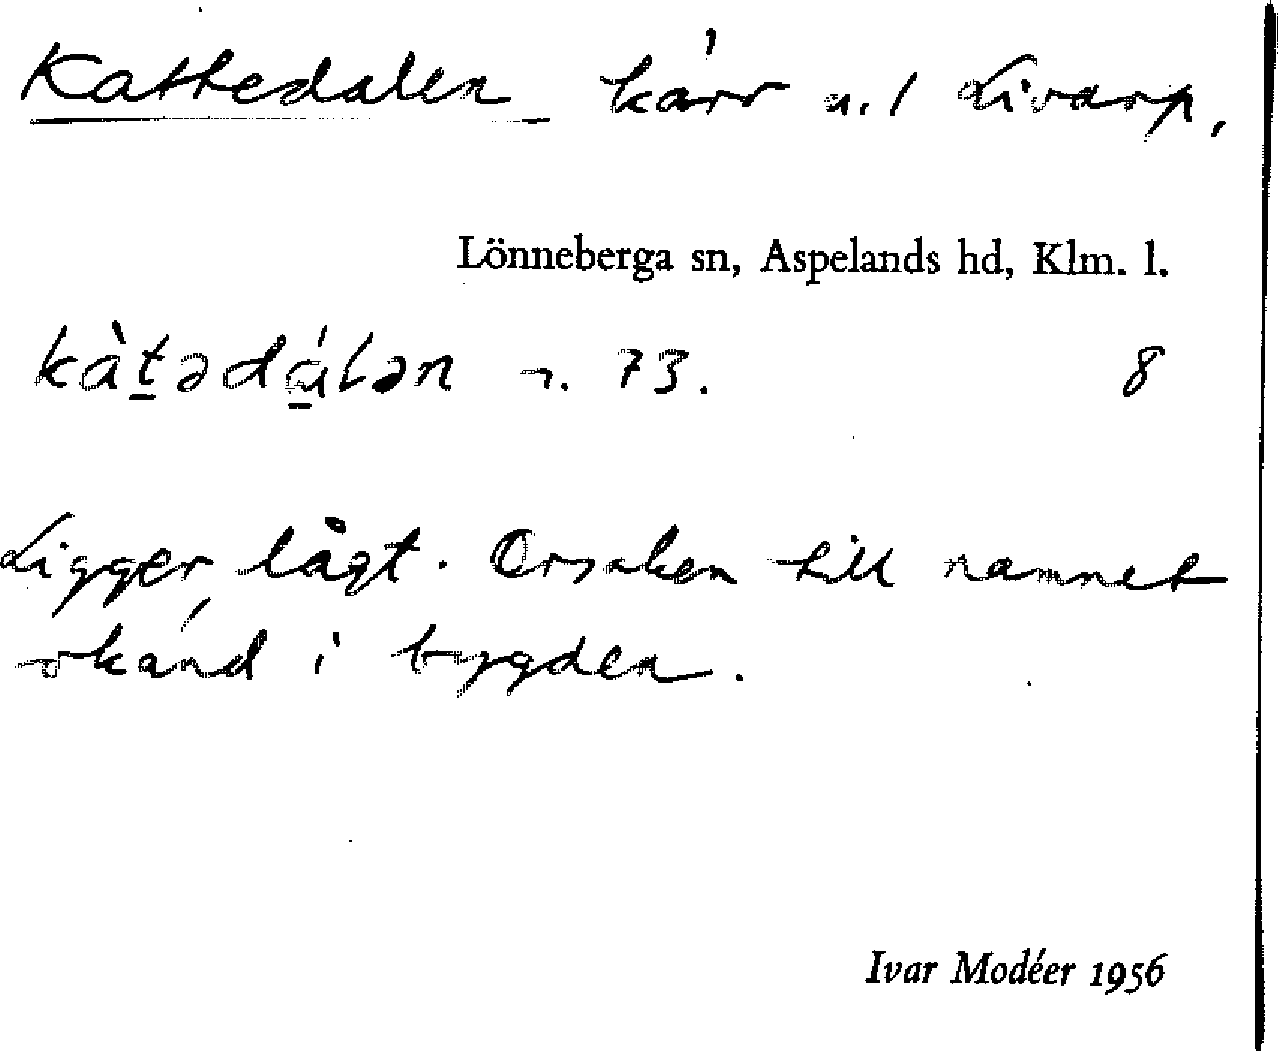 Kattedalen kärr u. / Livarp,
Lönneberga sn, Aspelands hd, Klm. l.
kàt̲ədá̲lən 73. 8
Ligger lågt. Orsaken till namnet
okänd i bygden.
Ivar Modéer 1956